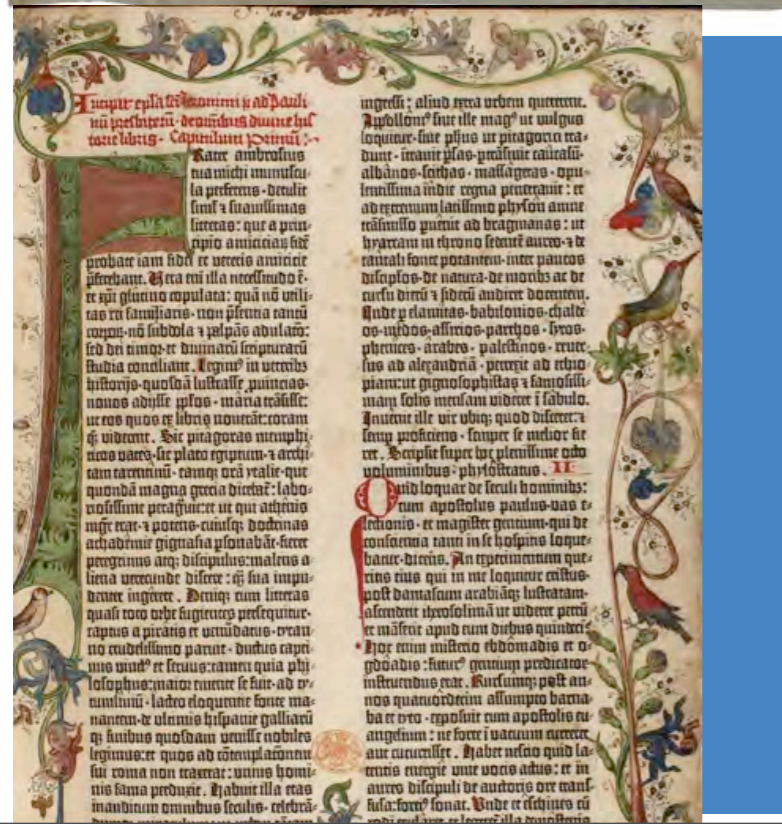 Incipit epl̄a sc̄i Ieronimi ꝑ ad Pauli
nū presbiterū · de omnibus diuine his
torie libris · Capitulum Primū :·
Frater ambrosius
tua michi munuscu-
la perferens · detulit
simł ⁊ suauissimas
litteras : que a prin-
cipio amiciciaꝝ fidē
probate iam fidei et veteris amicicie
p̄ferebant. Vera eni illa necessitudo ē·
et xp̄i glutino copulata : quā nō utili-
tas rei familiaris · non p̄sentia tantū
corpoꝝ · nō subdola ⁊ palpās adulatō :
sed dei timor · et diuinarū scripturarū
studia conciliant. Legimꝰ in veteribꝫ
historijs · quosdā lustrasse ꝓuincias ·
nouos adijsse pp̄los · maria trāsisse :
ut eos quos ex libris nouerāt : coram
qꝫ viderent. Sic pitagoras memphi-
ticos vates · sic plato egiptum · ⁊ archi-
tam tarentinū · eamqꝫ orā ytalie · que
quondā magna grecia dicebat̄ : labo-
riosissime peragrauit : et ut qui athenis
mgr̄ erat · ⁊ potens · cuiusqꝫ doctrinas
achademie gignasia ꝑsonabāt · fieret
peregrinus atqꝫ discipulus : malens a-
liena verecunde discere : qꝫ̄ sua impu-
denter ingerere. Deniqꝫ cum litteras
quasi toto orbe fugientes persequitur ·
captus a piratis et venūdatus · tyran-
no crudelissimo paruit · ductus capti-
uus vinctꝰ et seruus : tamen quia phi-
losophus : maior emente se fuit · ad ty-
tumlinū · lacteo eloquentie fonte ma-
nantem · de vltimis hispanie galliarū
qꝫ finibus quosdam venisse nobiles
legimus : et quos ad cōtemplationem
sui roma non traxerat : vnius homi-
nis fama perduxit. Habuit illa etas
inauditum omnibus seculis · celebrā-
ingressi : aliud extra vrbem quererent.
Appollonꝰ siue ille magꝰ ut vulgus
loquitur · siue ph̄us ut pitagorici tra-
dunt · itrauit ꝑsas · ꝑtrāsiuit caucasū ·
albānos · scithas · massagetas · opu-
lentissima indie regna penetrauit : et
ad extremum latissimo physon amne
trāsmisso ꝑuenit ad bragmanas : ut
hyarcam in throno sedentē aureo · ⁊ de
tantali fonte potantem · inter paucos
discipl̄os · de natura · de moribꝫ ac de
cursu dierū ⁊ siderū audiret docentem.
Inde ꝑ elamitas · babilonios · chalde
os · medos · assirios · parthos · syros ·
phenices · arabes · palestinos · reuer-
sus ad alexandriā · perrexit ad ethio-
piam : ut gignosophistas ⁊ famosissi-
mam solis mensam videret ī sabulo.
Inuenit ille vir vbiqꝫ quod disceret : ⁊
semꝑ proficiens · semper se melior fie-
ret. Scripsit super hoc plenissime octo
voluminibus · phylostratus. II
Quid loquar de seculi hominibꝫ :
cum apostolus paulus · vas e-
lectionis · et magister gentium · qui de
conscientia tanti in se hospitis loque-
batur · dicens. An experimentum que-
ritis eius qui in me loquitur cristus ·
post damascum arabiāqꝫ lustratam ·
ascenderit iherosolimā ut videret petrū
et māserit apud eum diebus quindecī ·
Hoc enim misterio ebdomadis et o-
gdoadis : futurꝰ gentium predicator
instruendus erat. Rursumqꝫ post an-
nos quatuordecim assumpto barna-
ba et tyto · exposuit cum apostolis eu-
angelium : ne forte ī vacuum curreret
aut cucurrisset. Habet nescio quid la-
tentis energie viue vocis actus : et in
aures discipuli de auctoris ore trans-
fusa : fortiꝰ sonat. Vnde et eschines cū